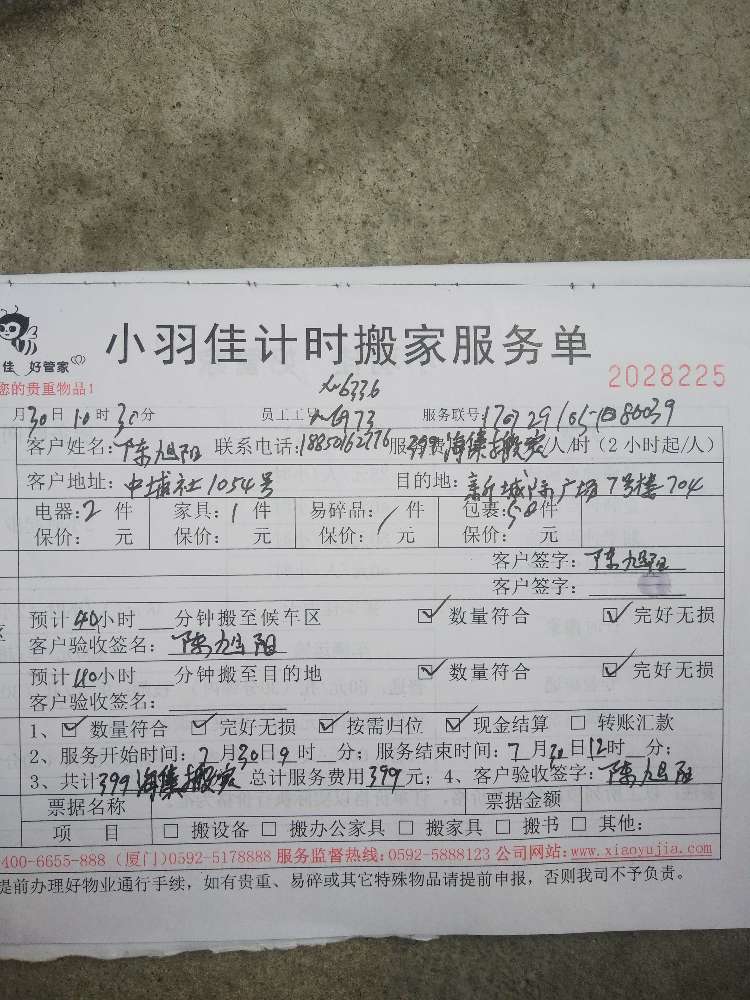 小羽佳计时搬家服务单
佳 好管家
您的贵重物品!
2028225
No6336
月30日10时30分 员工工号No6973 服务联号:
客户姓名:陈旭阳 联系电话:18850162776 服务费399海集搬家/人/时(2小时起/人)
客户地址:中埔社1054号 目的地:新城际广场7号楼704
电器:2件 家具:1件 易碎品:/件 包裹:50件
保价: 元 保价: 元 保价: 元 保价: 元
客户签字:陈旭阳
客户签字:
预计40小时 分钟搬至候车区 ☑数量符合 ☑完好无损
客户验收签名:陈旭阳
预计40小时 分钟搬至目的地 ☑数量符合 ☑完好无损
客户验收签名:
1、☑数量符合 ☑完好无损 ☑按需归位 ☑现金结算 □转账汇款
2、服务开始时间:7月30日9时 分;服务结束时间:7月30日12时 分;
3、共计399海集搬家总计服务费用399元;4、客户验收签字:陈旭阳
票据名称 票据金额
项目 □搬设备 □搬办公家具 □搬家具 □搬书 □其他:
400-6655-888 (厦门)0592-5178888 服务监督热线:0592-5888123 公司网站:www.xiaoyujia.com
提前办理好物业通行手续,如有贵重、易碎或其它特殊物品请提前申报,否则我司不予负责。